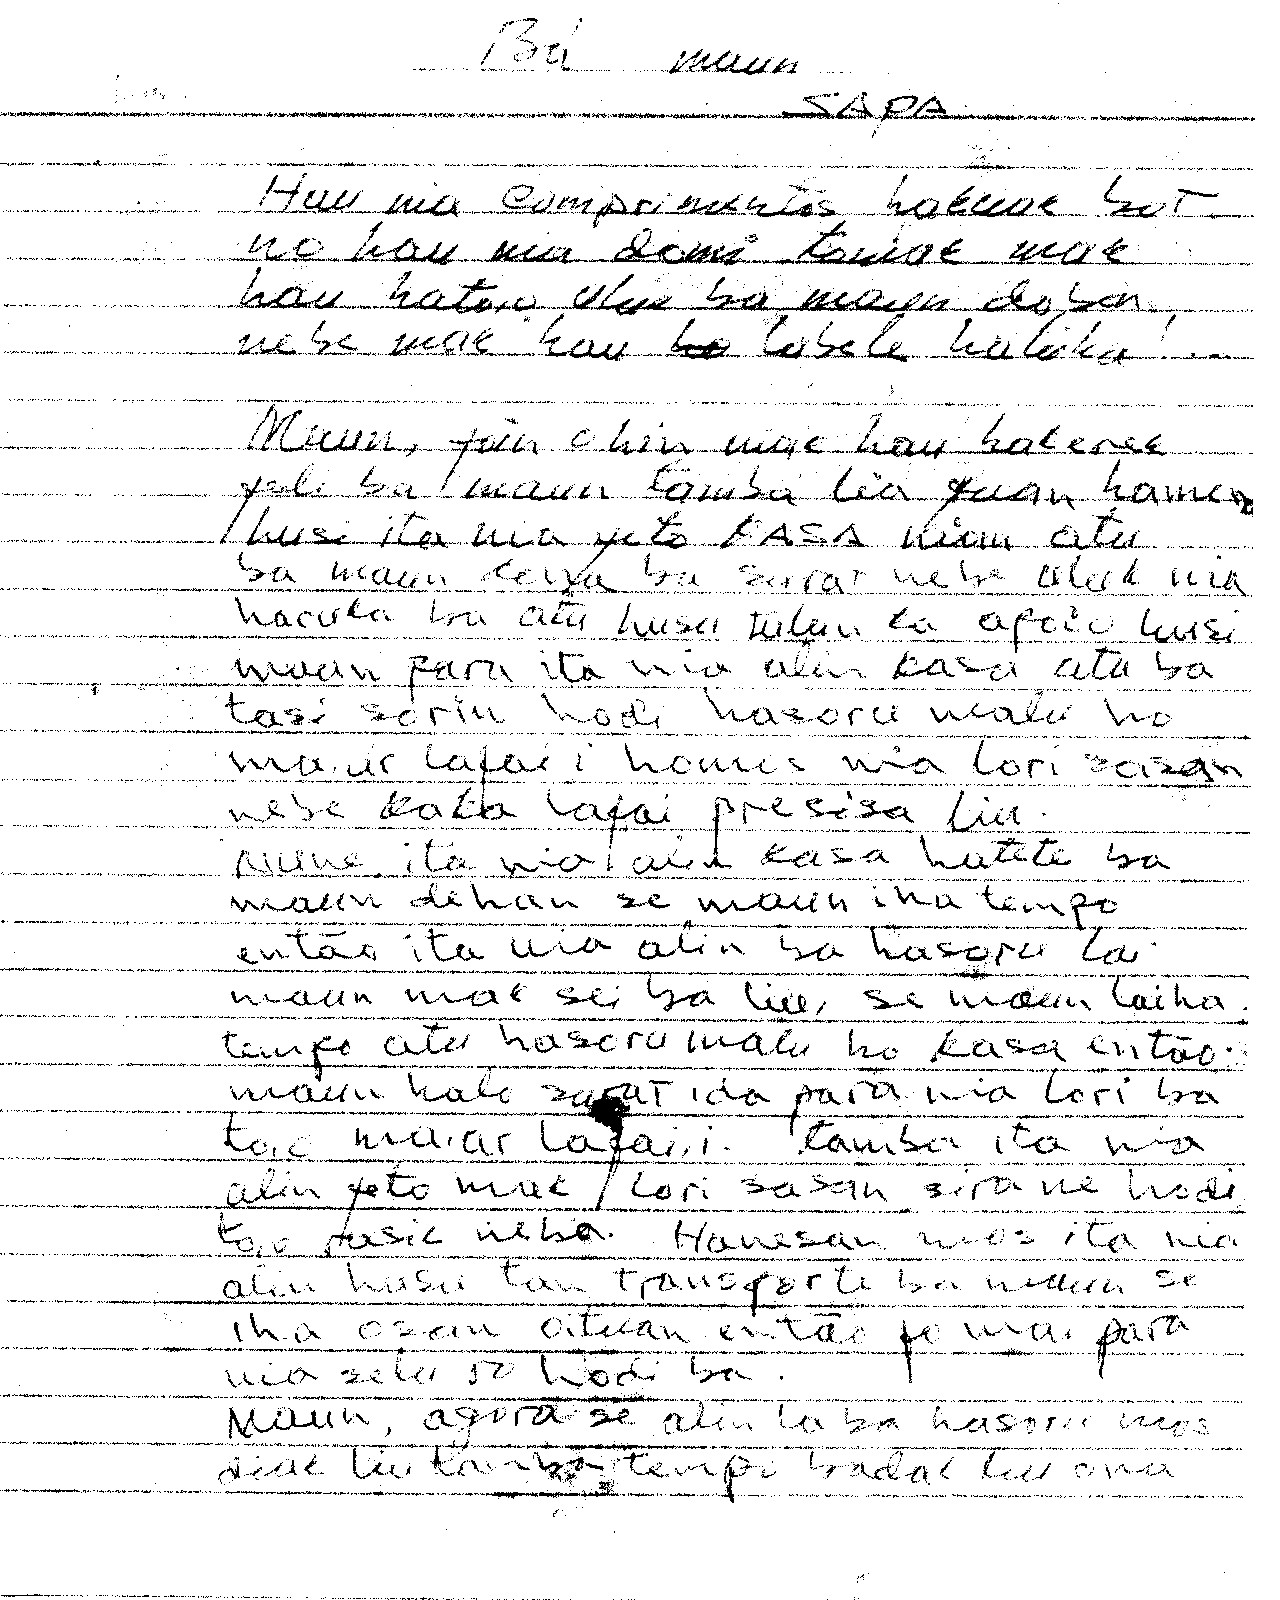 Bá maun
SAPA
Hau nia comprimentos hakuak bot
no hau nia domi tomak mak
hau hato'o uluk ba maun doben,
nebe mak hau ho labele haluha!...
Maun, foin ohin mak hau hakerek
fali ba maun tamba lia fuan
husi ita nia feto KASA nian atu
ba maun kona ba surat nebe uluk nia
haruka ba atu husu tulun ka apoio husi
maun para ita nia alin kasa atu ba
tasi sorin hodi hasoru malu ho
ma.ar lafai i homis nia lori sasan
nebe kaka lafai presisa liu.
Nune ita nia alin kasa hatete ba
maun dehan se maun iha tempo
então ita nia alin ba hasoru lai
maun mak sei ba liu, se maun laiha
tempo atu hasoru malu ho kasa então
maun halo surat ida para nia lori ba
to.o ma.ar lafai.i. tamba ita nia
alin feto mak lori sasan sira ne hodi
to.o rasik neba. Hanesan mos ita nia
alin husu tan transporte ba maun se
iha osan oituan então fo mai para
nia selu hodi ba.
Maun, agora se alin la ba hasoru mos
diak liu tamba tempo badak liu ona